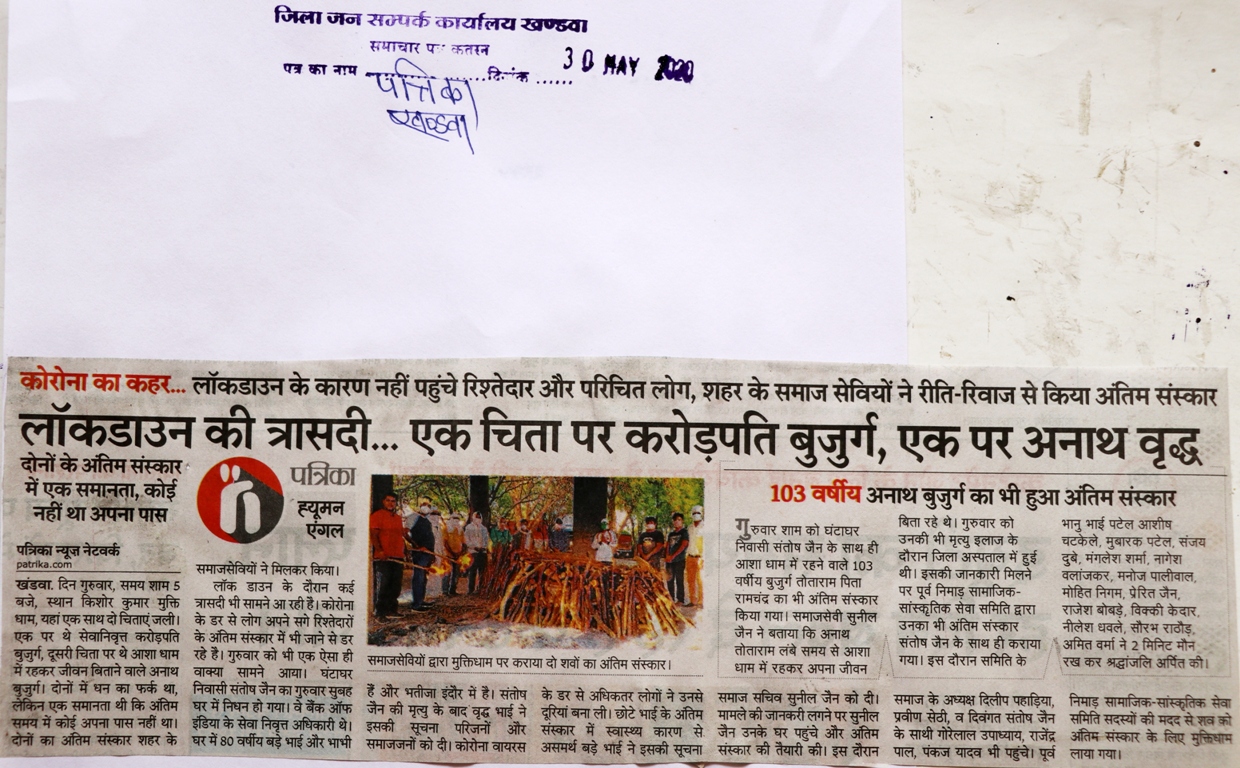 जिला जन सम्पर्क कार्यालय खण्डवा
समाचार पत्र कतरन
पत्र का नाम ..........दिनांक ......
30 MAY 2020
पत्रिका
खण्डवा
कोरोना का कहर... लॉकडाउन के कारण नहीं पहुंचे रिश्तेदार और परिचित लोग, शहर के समाज सेवियों ने रीति-रिवाज से किया अंतिम संस्कार
लॉकडाउन की त्रासदी... एक चिता पर करोड़पति बुजुर्ग, एक पर अनाथ वृद्ध
दोनों के अंतिम संस्कार
में एक समानता, कोई
नहीं था अपना पास
पत्रिका न्यूज नेटवर्क
patrika.com
खंडवा. दिन गुरुवार, समय शाम 5
बजे, स्थान किशोर कुमार मुक्ति
धाम, यहां एक साथ दो चिताएं जली।
एक पर थे सेवानिवृत्त करोड़पति
बुजुर्ग, दूसरी चिता पर थे आशा धाम
में रहकर जीवन बिताने वाले अनाथ
बुजुर्ग। दोनों में धन का फर्क था,
लेकिन एक समानता थी कि अंतिम
समय में कोई अपना पास नहीं था।
दोनों का अंतिम संस्कार शहर के
पत्रिका
ह्यूमन
एंगल
समाजसेवियों ने मिलकर किया।
लॉक डाउन के दौरान कई
त्रासदी भी सामने आ रही है। कोरोना
के डर से लोग अपने सगे रिश्तेदारों
के अंतिम संस्कार में भी जाने से डर
रहे है। गुरुवार को भी एक ऐसा ही
वाक्या सामने आया। घंटाघर
निवासी संतोष जैन का गुरुवार सुबह
घर में निधन हो गया। वे बैंक ऑफ
इंडिया के सेवा निवृत्त अधिकारी थे।
घर में 80 वर्षीय बड़े भाई और भाभी
समाजसेवियों द्वारा मुक्तिधाम पर कराया दो शवों का अंतिम संस्कार।
हैं और भतीजा इंदौर में है। संतोष
जैन की मृत्यु के बाद वृद्ध भाई ने
इसकी सूचना परिजनों और
समाजजनों को दी। कोरोना वायरस
के डर से अधिकतर लोगों ने उनसे
दूरियां बना ली। छोटे भाई के अंतिम
संस्कार में स्वास्थ्य कारण से
असमर्थ बड़े भाई ने इसकी सूचना
समाज सचिव सुनील जैन को दी।
मामले की जानकरी लगने पर सुनील
जैन उनके घर पहुंचे और अंतिम
संस्कार की तैयारी की। इस दौरान
समाज के अध्यक्ष दिलीप पहाड़िया,
प्रवीण सेठी, व दिवंगत संतोष जैन
के साथी गोरेलाल उपाध्याय, राजेंद्र
पाल, पंकज यादव भी पहुंचे। पूर्व
निमाड़ सामाजिक-सांस्कृतिक सेवा
समिति सदस्यों की मदद से शव को
अंतिम संस्कार के लिए मुक्तिधाम
लाया गया।
103 वर्षीय अनाथ बुजुर्ग का भी हुआ अंतिम संस्कार
गुरुवार शाम को घंटाघर
निवासी संतोष जैन के साथ ही
आशा धाम में रहने वाले 103
वर्षीय बुजुर्ग तोताराम पिता
रामचंद्र का भी अंतिम संस्कार
किया गया। समाजसेवी सुनील
जैन ने बताया कि अनाथ
तोताराम लंबे समय से आशा
धाम में रहकर अपना जीवन
बिता रहे थे। गुरुवार को
उनकी भी मृत्यु इलाज के
दौरान जिला अस्पताल में हुई
थी। इसकी जानकारी मिलने
पर पूर्व निमाड़ सामाजिक-
सांस्कृतिक सेवा समिति द्वारा
उनका भी अंतिम संस्कार
संतोष जैन के साथ ही कराया
गया। इस दौरान समिति के
भानु भाई पटेल आशीष
चटकेले, मुबारक पटेल, संजय
दुबे, मंगलेश शर्मा, नागेश
वलांजकर, मनोज पालीवाल,
मोहित निगम, प्रेरित जैन,
राजेश बोबड़े, विक्की केदार,
नीलेश धवले, सौरभ राठौड़,
अमित वर्मा ने 2 मिनीट मौन
रख कर श्रद्धांजलि अर्पित की।